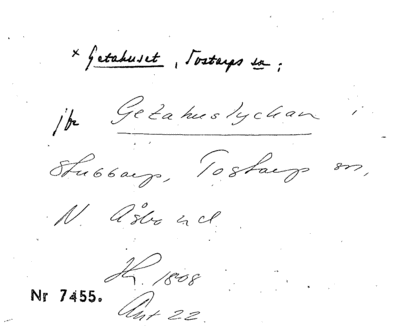 × Getahuset, Tostarps sn;
jfr Getahuslyckan i
Stubbarp, Tostarp sn,
N. Åsbo hd
1808
Nr 7455.
Akt 22